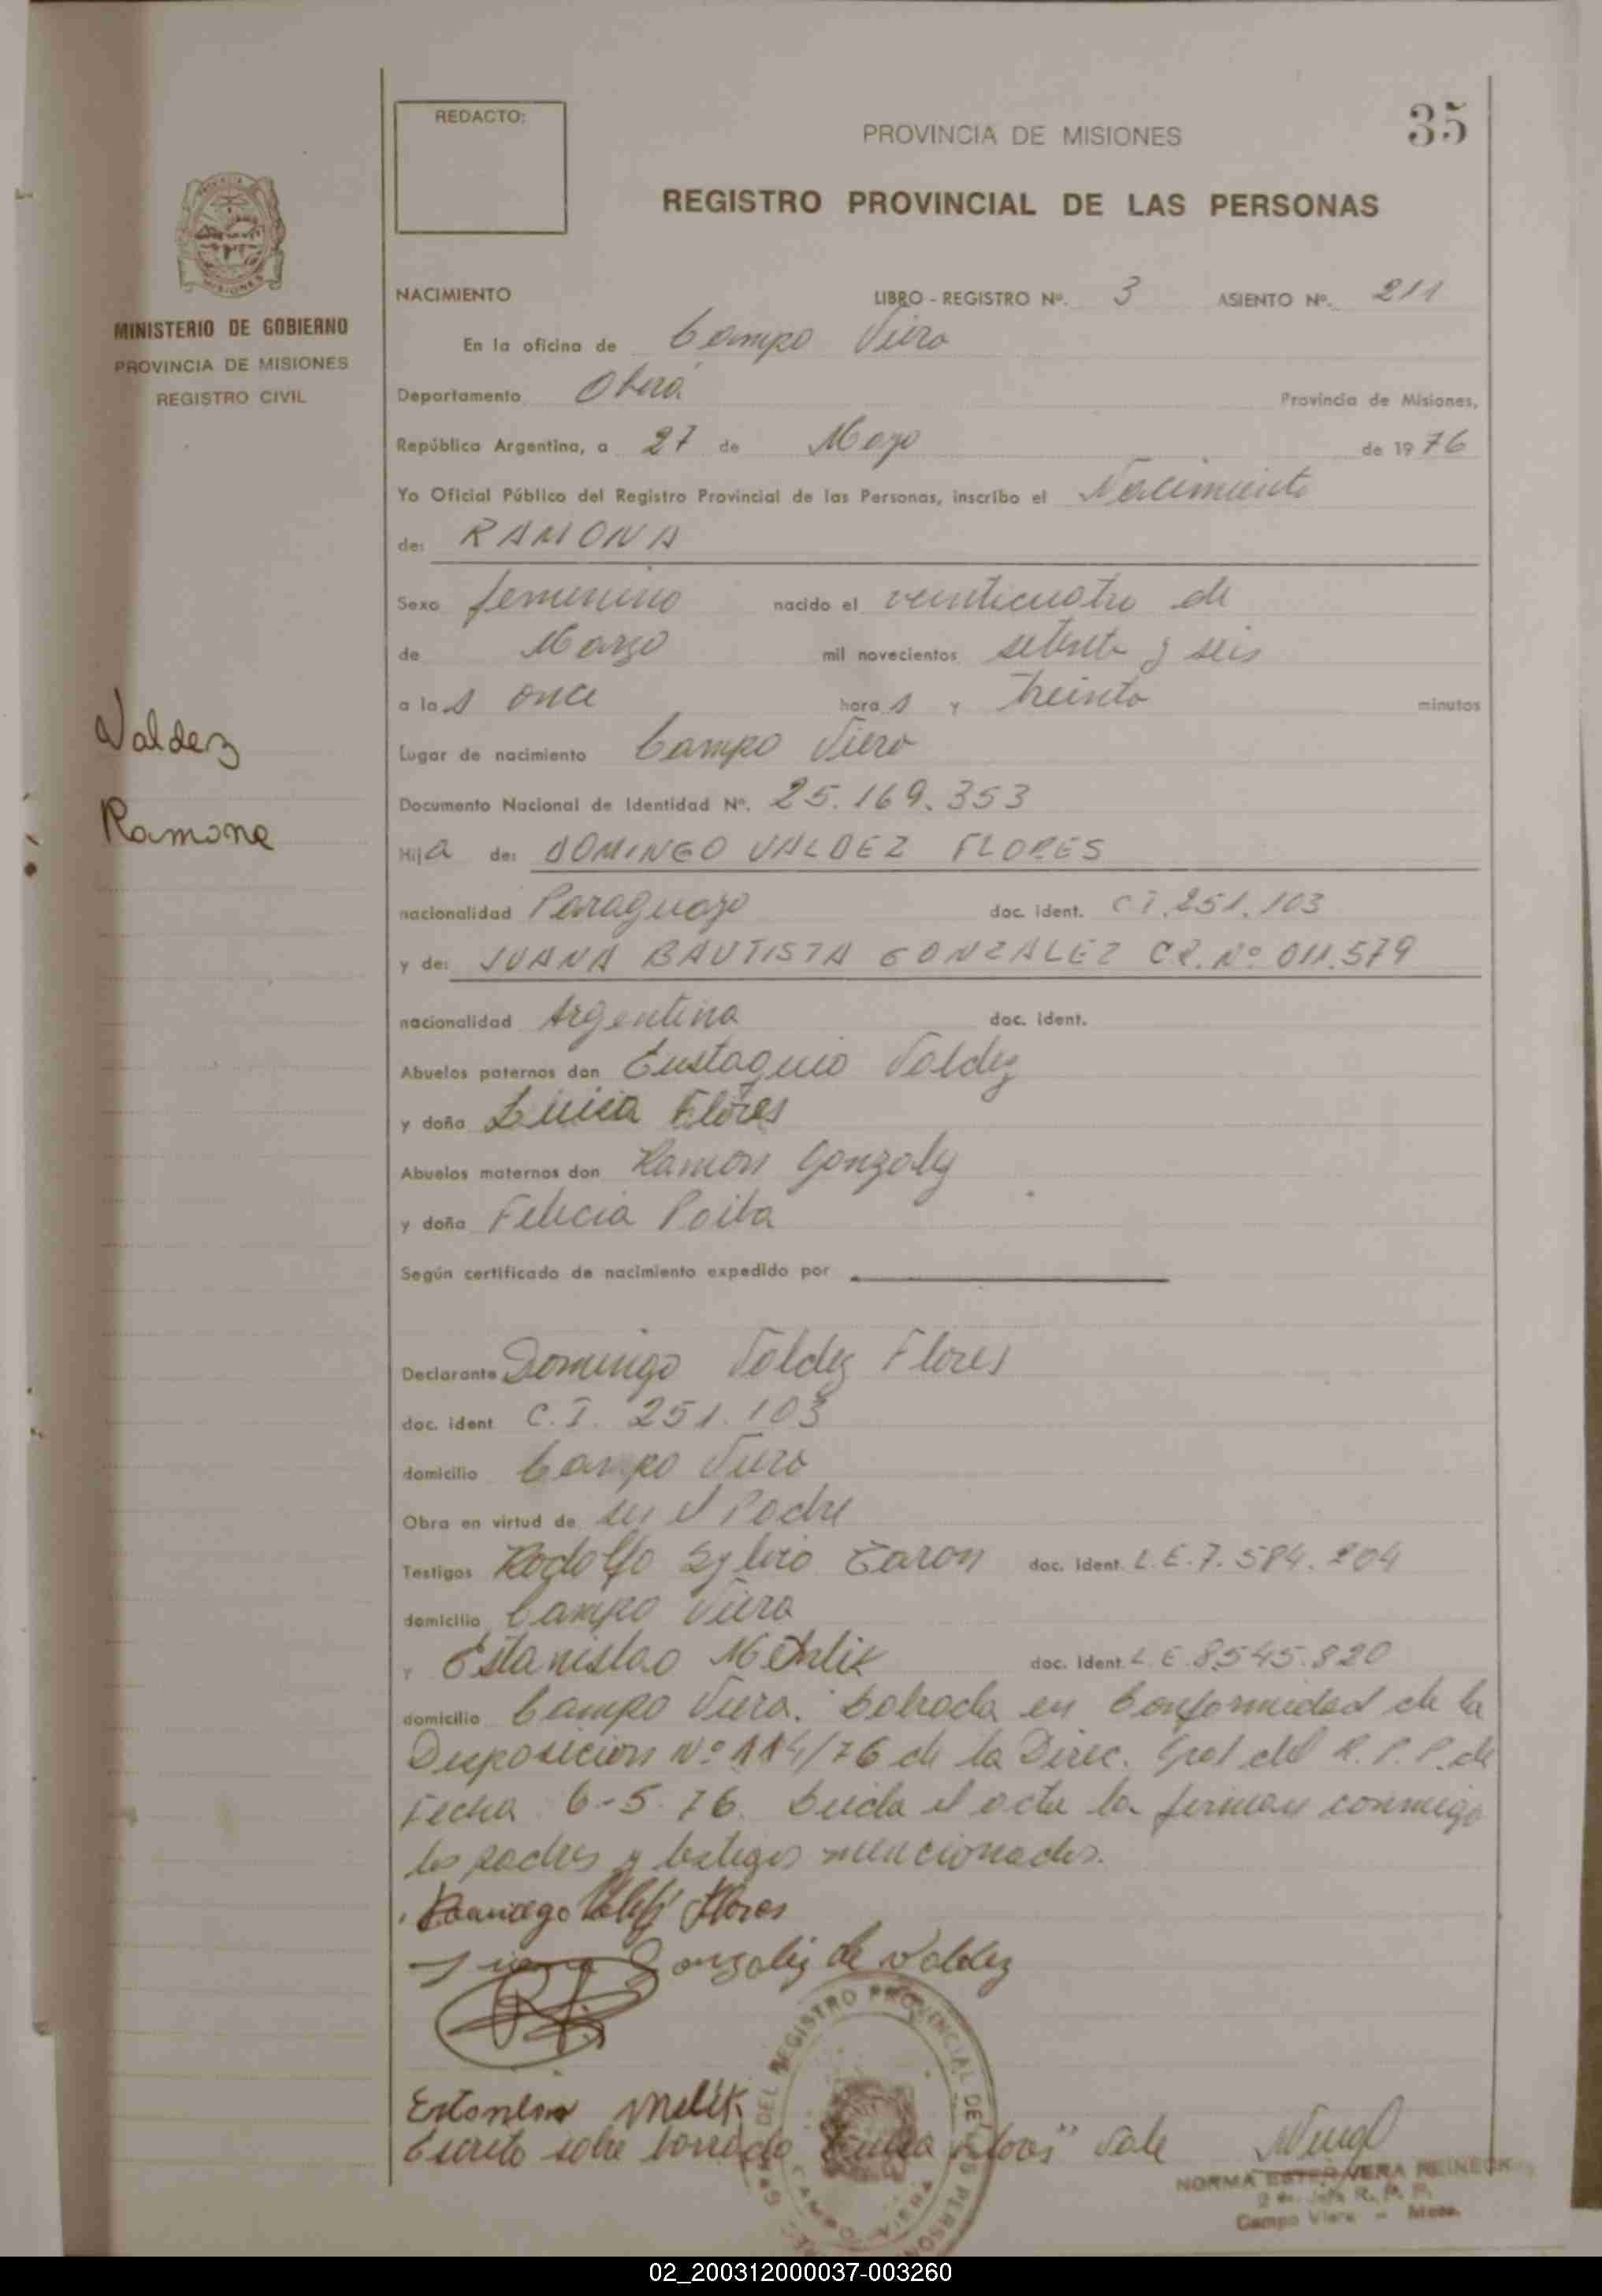 REDACTO:
PROVINCIA DE MISIONES
35
REGISTRO PROVINCIAL DE LAS PERSONAS
MINISTERIO DE GOBIERNO
PROVINCIA DE MISIONES
REGISTRO CIVIL
NACIMIENTO LIBRO - REGISTRO Nº. 3 ASIENTO Nº. 211
En la oficina de Campo Viera
Departamento Oberá Provincia de Misiones,
República Argentina, a 27 de Mayo de 1976
Yo Oficial Público del Registro Provincial de las Personas, inscribo el Nacimiento
de: RAMONA
Sexo femenino nacido el veinticuatro de
de Marzo mil novecientos setenta y seis
a las once horas y treinta minutos
Valdez
Ramona
Lugar de nacimiento Campo Viera
Documento Nacional de Identidad Nº. 25.169.353
Hija de: DOMINGO VALDEZ FLORES
nacionalidad Paraguayo doc. ident. C.I. 251.103
y de: JUANA BAUTISTA GONZALEZ C.R. Nº 011.579
nacionalidad Argentina doc. ident.
Abuelos paternos don Eustaquio Valdez
y doña Luisa Flores
Abuelos maternos don Ramon Gonzalez
y doña Felicia
Según certificado de nacimiento expedido por
Declarante Domingo Valdez Flores
doc. ident C.I. 251.103
domicilio Campo Viera
Obra en virtud de ser el Padre
Testigos Rodolfo Sylvio doc. Ident. L.E. 7.584.204
domicilio Campo Viera
y Estanislao doc. Ident. L.E. 8.545.820
domicilio Campo Viera. Labrada en Conformidad de la
Disposicion Nº 114/76 de la Direc. Gral del R.P.P. de
Fecha 6-5-76. Leida el acta la firman conmigo
los padres y testigos mencionados.
Domingo Valdez Flores
Juana Gonzalez de Valdez
Escrito sobre borrado "Luisa Flores" Vale
DEL REGISTRO PROVINCIAL DE LAS PERSONAS
CAMPO VIERA
NORMA ESTER VERA REINECK
Jefe R. P. P.
Campo Viera - Mnes.
02_200312000037-003260